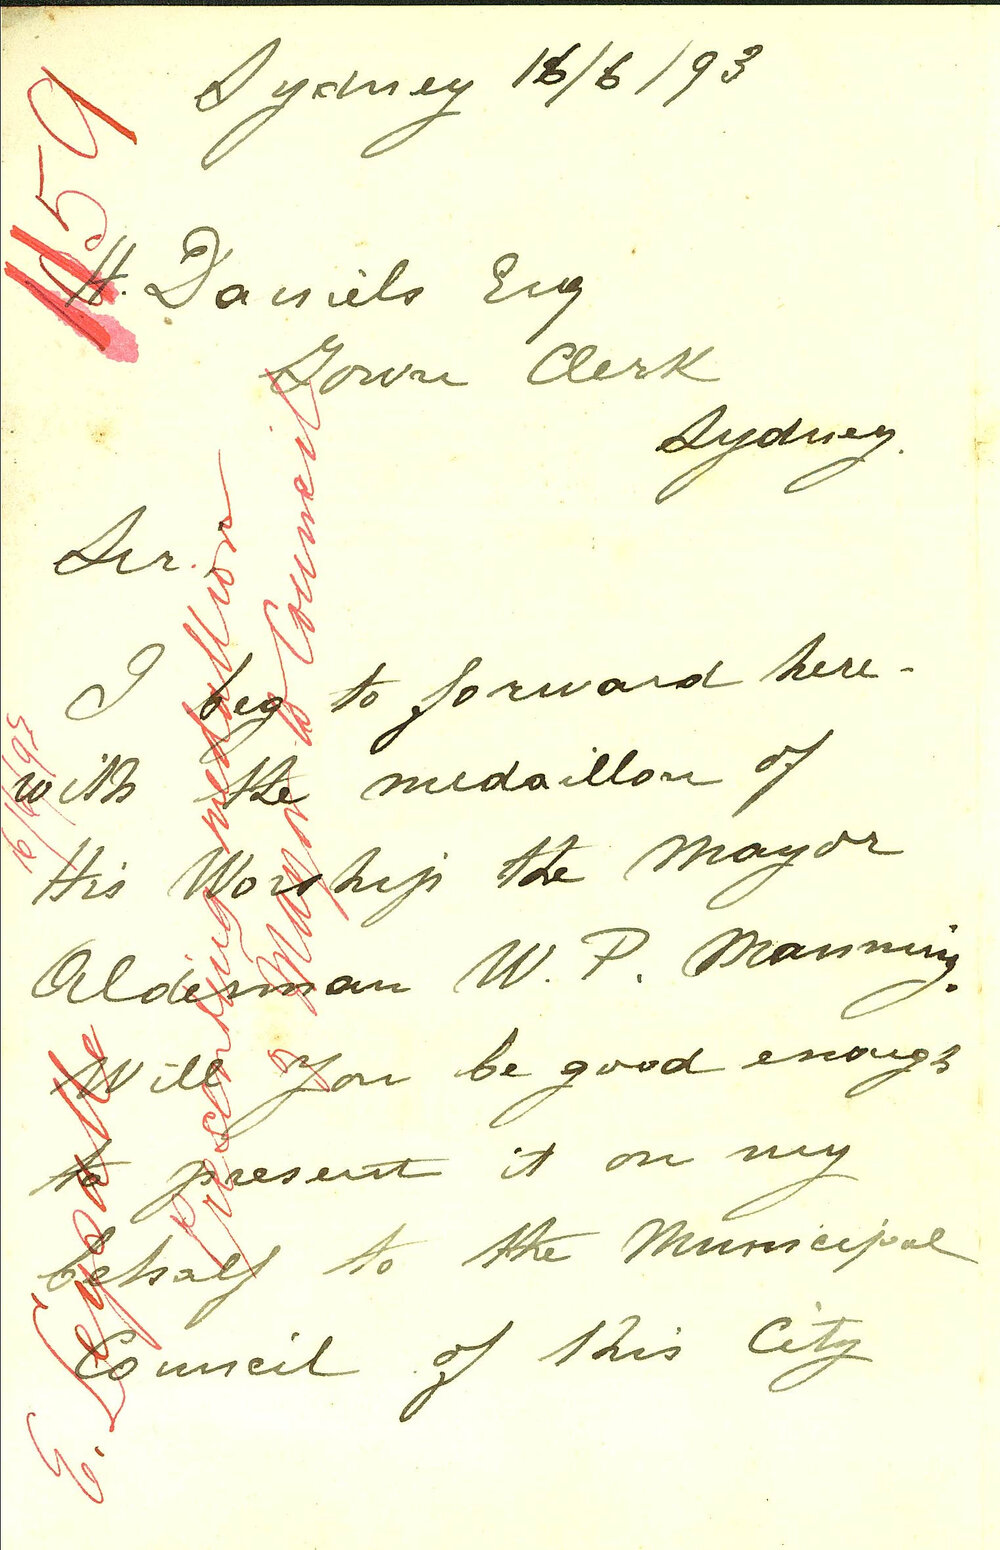 Sydney 16/6/93
H. Daniels Esq
Town Clerk
Sydney.
Sir.
I beg to forward here-
with the medaillon of
His Worship the Mayor
Alderman W. P. Manning.
Will you be good enough
to present it on my
behalf to the Municipal
Council of this City
1159
16/6/93
E. Legalle
Presenting medallion
of Mayor to Council